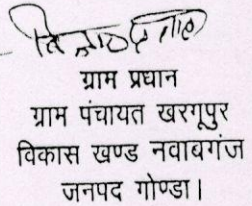 ग्राम प्रधान
ग्राम पंचायत खरगूपुर
विकास खण्ड नवाबगंज
जनपद गोण्डा।